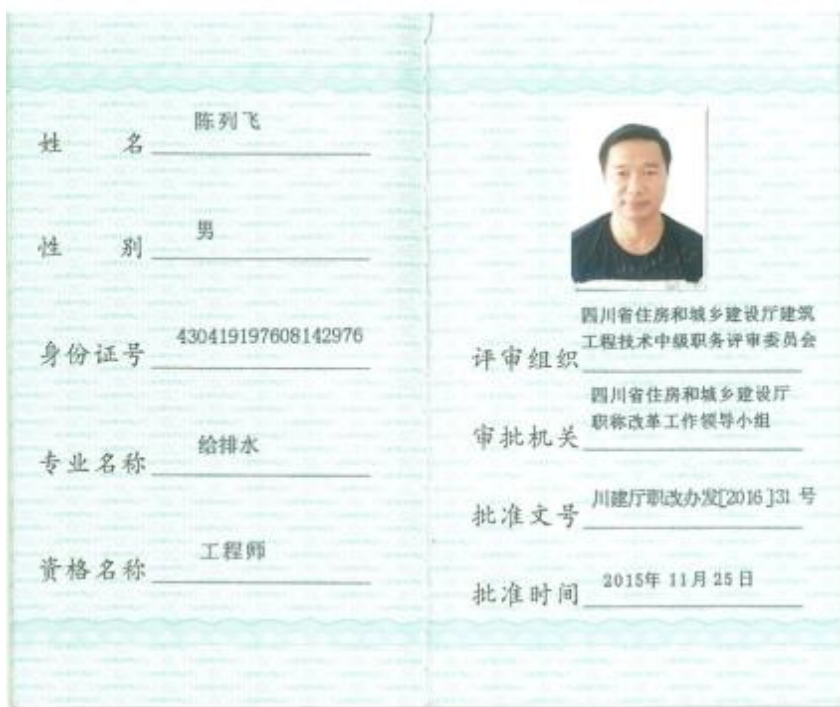 姓名 陈列飞
性别 男
身份证号 430419197608142976
专业名称 给排水
资格名称 工程师
四川省住房和城乡建设厅建筑
评审组织 工程技术中级职务评审委员会
四川省住房和城乡建设厅
审批机关 职称改革工作领导小组
批准文号 川建厅职改办发[2016]31 号
批准时间 2015年 11月 25日